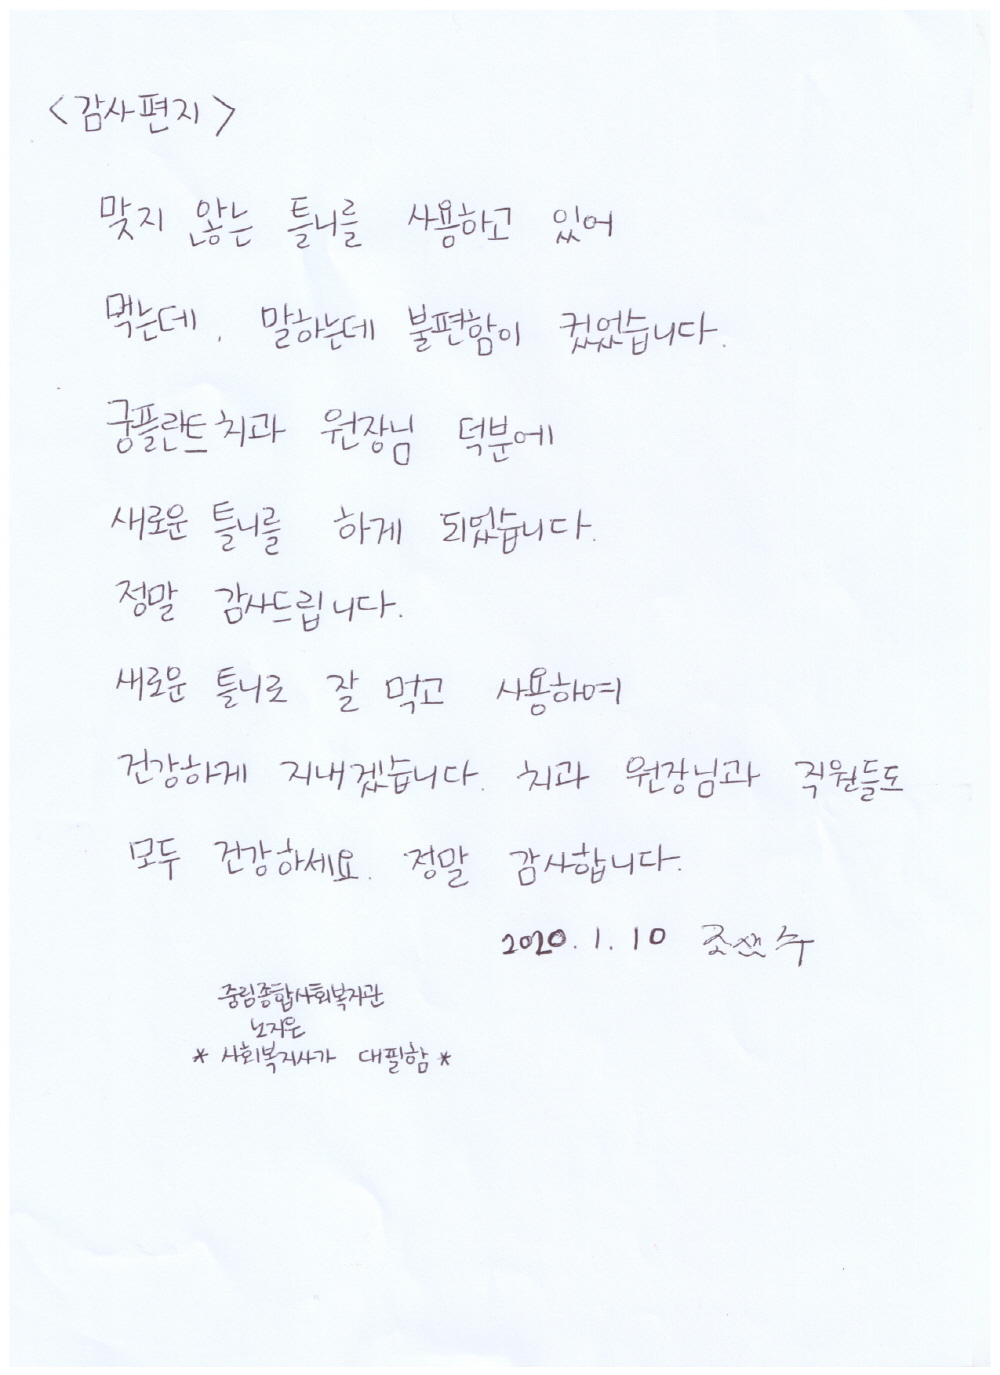 <감사편지>
맞지 않는 틀니를 사용하고 있어
먹는데, 말하는데 불편함이 컸었습니다.
굼플란트치과 원장님 덕분에
새로운 틀니를 하게 되었습니다.
정말 감사드립니다.
새로운 틀니로 잘 먹고 사용하여
건강하게 지내겠습니다. 치과 원장님과 직원들도
모두 건강하세요. 정말 감사합니다.
2020.1.10
중림종합사회복지관
노지은
* 사회복지사가 대필함 *